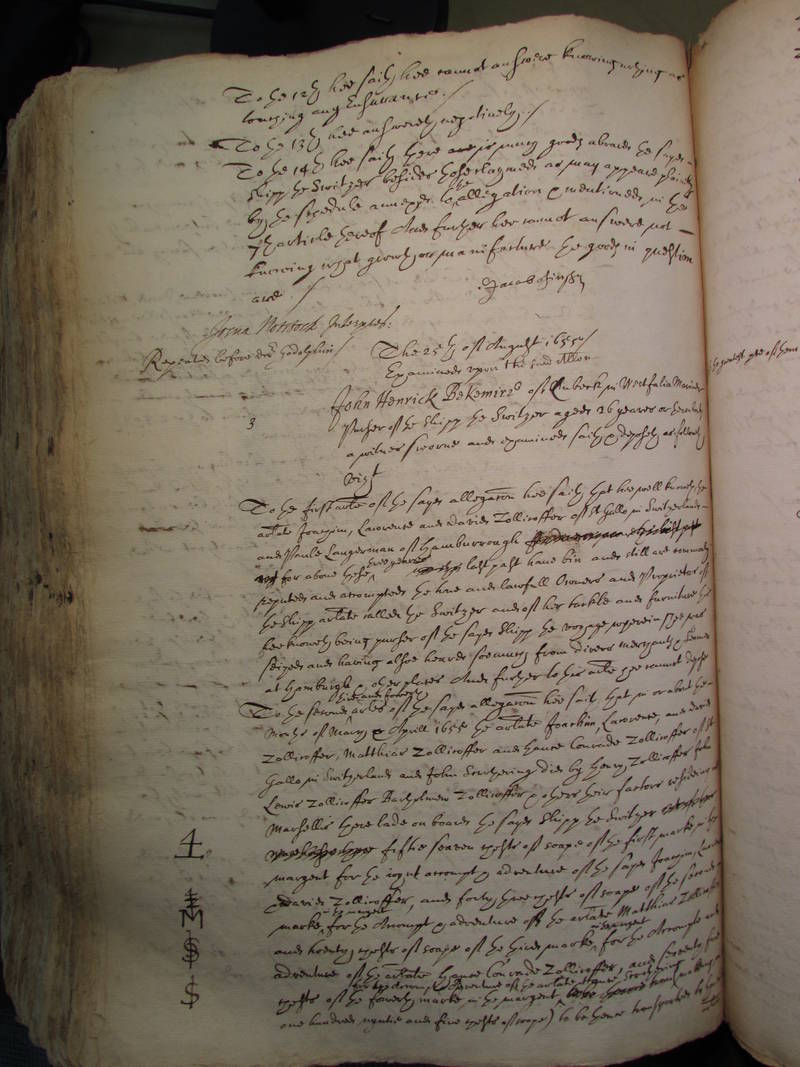 To the 12th hee saith hee cannot answere knowing nothing as
touching any Ensurance./
To the 13th hee answereth negatively./
To the 14th hee saith there were in many goods aboard the sayd
shipp the Switzer besides those claymed as may appeare plainely
by the schedule annexed to the allegation & mentioned in the
7th article thereof And further hee cannot answere not
knowing what growth or manufacture the goods in question
are./
Jacob
Josua Interpres:
Repeated before dr Godolphin/
The 25th of August 1655
Examined upon the said Allon
3
John Henrick Bekemires of Lubeck in Westfalia Mariner
Purser of the shipp the Switzer aged 26 yeares or thereabouts
a witnes sworne and examined saith & deposeth as followeth
vizt
To the first arte of the sayd allegaton hee saith that hee well knoweth the
artate Joachim, Lawrence and David Zollicoffer of St Gallo in Switzerland
and Paule Langerman of Hamburrough
for above these three yeares last past have bin and still are commonly
reputed and accompted the true and lawfull Owners and Proprietors of
the shipp artate called the Switzer and of her tackle and furniture
hee knoweth being purser of the sayd shipp the voyage wherein shee was
seized and having alsoe heard soe much from divers merchants
at Hamburgh & other places And further to this arte hee cannot depose
To the second third and fourth artes of the sayd allegaton hee saith that in or about the
Moneths of March & Aprill 1655 the artate Joachim, Lawrence, and David
Zollicoffer, Matthias Zollicoffer and Hance Conrade Zollicoffer of St
Gallo in Switzerland and John did by Henry Zollicoffer
Lewis Zollicoffer Bartholmew Zollicoffer & others their factors resideing at
Marsellis there lade on board the sayd shipp the Switzer
fiftie seaven chests of soape of the first marke in the
margent for the ioynt accompt & adventure of the sayd Joachim, Lawrence
& David Zollicoffer, and forty three chests of soape of the second
marke in the margent for the Accompt & adventure of the artate Matthias Zollicoffer
and twenty chests of soape of the third marke in the margent, for the Accompt and
adventure of the artate Hance Conrade Zollicoffer, and seventy five
chests of the fourth marke in the margent, for the Accompt & adventure of the artate
one hundred nyntie and five chests of soape) to be thence transported to
the greatest parte of them